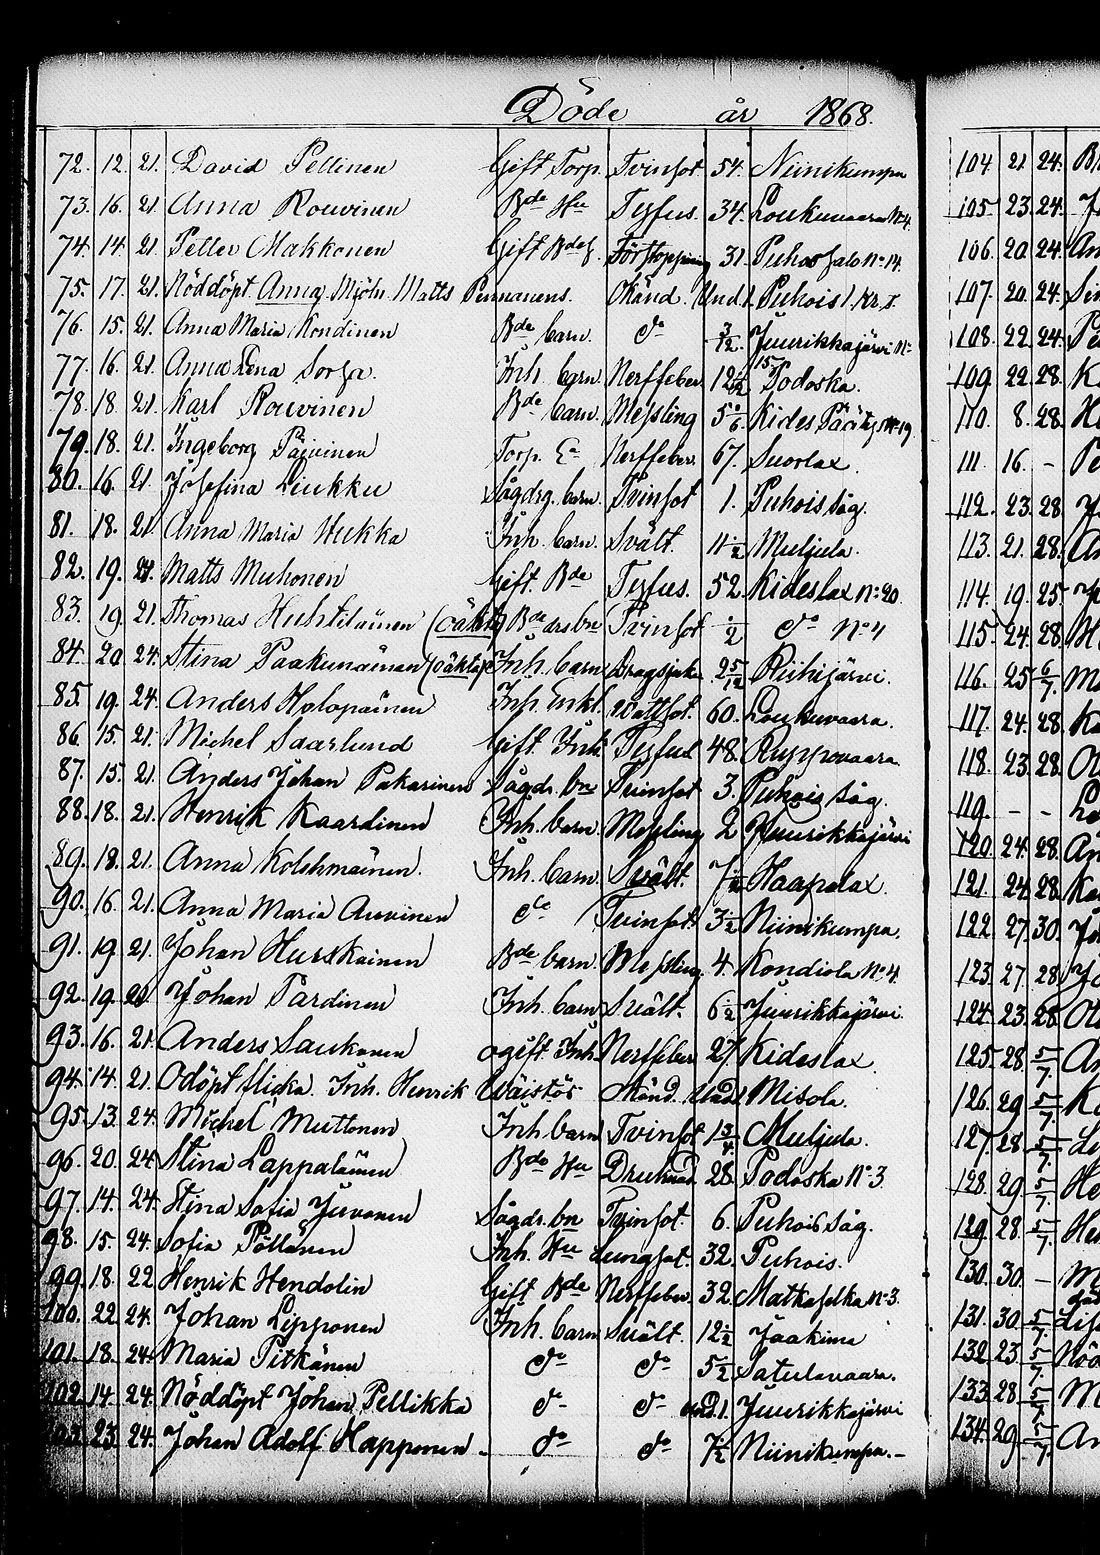 Döde år 1868.
72. 12. 21. David Pellinen Gift Torp. Tvinsot 54. Niinikumpu
73. 16. 21. Anna Rouvinen Bde Hu Tyfus. 34. Loukuvaara No 4.
74. 14. 21. Petter Makkonen Gift Bde Förstoppning 31. Puhossalo No 14.
75. 17. 21. Nöddöpt Anna, Mjöln. Matts Pennanens. Okänd. Und. 1. Puhois
76. 15. 21. Anna Maria Kondinen Bde barn. do 3/12. Juurikkajärvi No 15
77. 16. 21. Anna Lena Sorsa. Inh. barn. Nerffeber 12 Podoska.
78. 18. 21. Karl Rouvinen Bde barn. Messling 5 Kides No 19
79. 18. 21. Ingeborg Päivinen Torp. Ea Nerffeber. 67. Suorlax.
80. 16. 21. Josefina Liukku Sågdrg. barn. Tvinsot 1. Puhois såg.
81. 18. 21. Anna Maria Hukka Inh. barn. Svält. 11 1/2 Muljula.
82. 19. 21. Matts Muhonen Gift. Bde Tyfus. 52. Kideslax No 20
83. 19. 21. Thomas Huhtilainen (oäkta) Bde drs bn Tvinsot 1/2 do No 4
84. 20. 24. Stina Paakunainen (oäkta) Inh. barn Dragsjuka 2 5/12 Riihijärvi.
85. 19. 24. Anders Holopainen Inh. Enkl. Wattsot. 60. Loukuvaara.
86. 15. 21. Michel Saarlund Gift. Inh. Tyfus 48. Ruppovaara
87. 15. 21. Anders Johan Pakarinen Sågdr. bn Tvinsot 3. Puhois såg.
88. 18. 21. Henrik Kaardinen Inh. barn. Messling 2 Juurikkajärvi
89. 18. 21. Anna Kolehmainen. Inh. barn. Svält. 7 1/2 Haapalax
90. 16. 21. Anna Maria Auvinen do Tvinsot. 3 1/2 Niinikumpu.
91. 19. 21. Johan Hurskainen Bde barn. Messling 4. Kondiola No 4.
92. 19. 21. Johan Pardinen Inh. barn Svält. 6 1/2 Juurikkajärvi.
93. 16. 21. Anders Saukonen ogift. Inh. Nerffeber 27. Kideslax
94. 14. 21. Odöpt flicka. Inh. Henrik Wäistös Okänd. Und. 1 Misola.
95. 13. 24. Michel Muttonen Inh. barn Tvinsot 1 3/4. Muljula.
96. 20. 24. Stina Lappalainen Bde Hu Drunknad. 28. Podoska No 3
97. 14. 24. Stina Sofia Juvonen Sågdr. bn Tvinsot. 6. Puhois såg.
98. 15. 24. Sofia Pöllänen Inh. Hu Lungsot. 32. Puhois.
99. 18. 22. Henrik Hendolin Gift Bde Nerffeber. 32. Matkaselkä No 3.
100. 22. 24. Johan Lipponen Inh. barn Svält. 12 1/2 Jaakima
101. 18. 24. Maria Pitkänen do do 5 1/2 Satulavaara.
102. 14. 24. Nöddöpt Johan Pellikka do do und. 1. Juurikkajärvi
103. 23. 24. Johan Adolf Happonen do do 7 1/2 Niinikumpu.
104. 21. 24.
105. 23. 24.
106. 20. 24. An
107. 20. 24.
108. 22. 24. Pe
109. 22. 28. K
110. 8. 28. H
111. 16. - Pe
112. 23. 28. J
113. 21. 28. An
114. 19. 25.
115. 24. 28. H
116. 25 6/7. M
117. 24. 28. Ka
118. 23. 28.
119. - - Lo
120. 24. 28. An
121. 24. 28. Ka
122. 27. 30. Jo
123. 27. 28. Jo
124. 23. 28.
125. 28. 5/7. An
126. 29. 5/7. Ka
127. 28. 5/7.
128. 29. 5/7. He
129. 28. 5/7. He
130. 30. - M
131. 30. 5/7.
132. 23. 5/7. Nöd
133. 28. 5/7. M
134. 29. 5/7. An